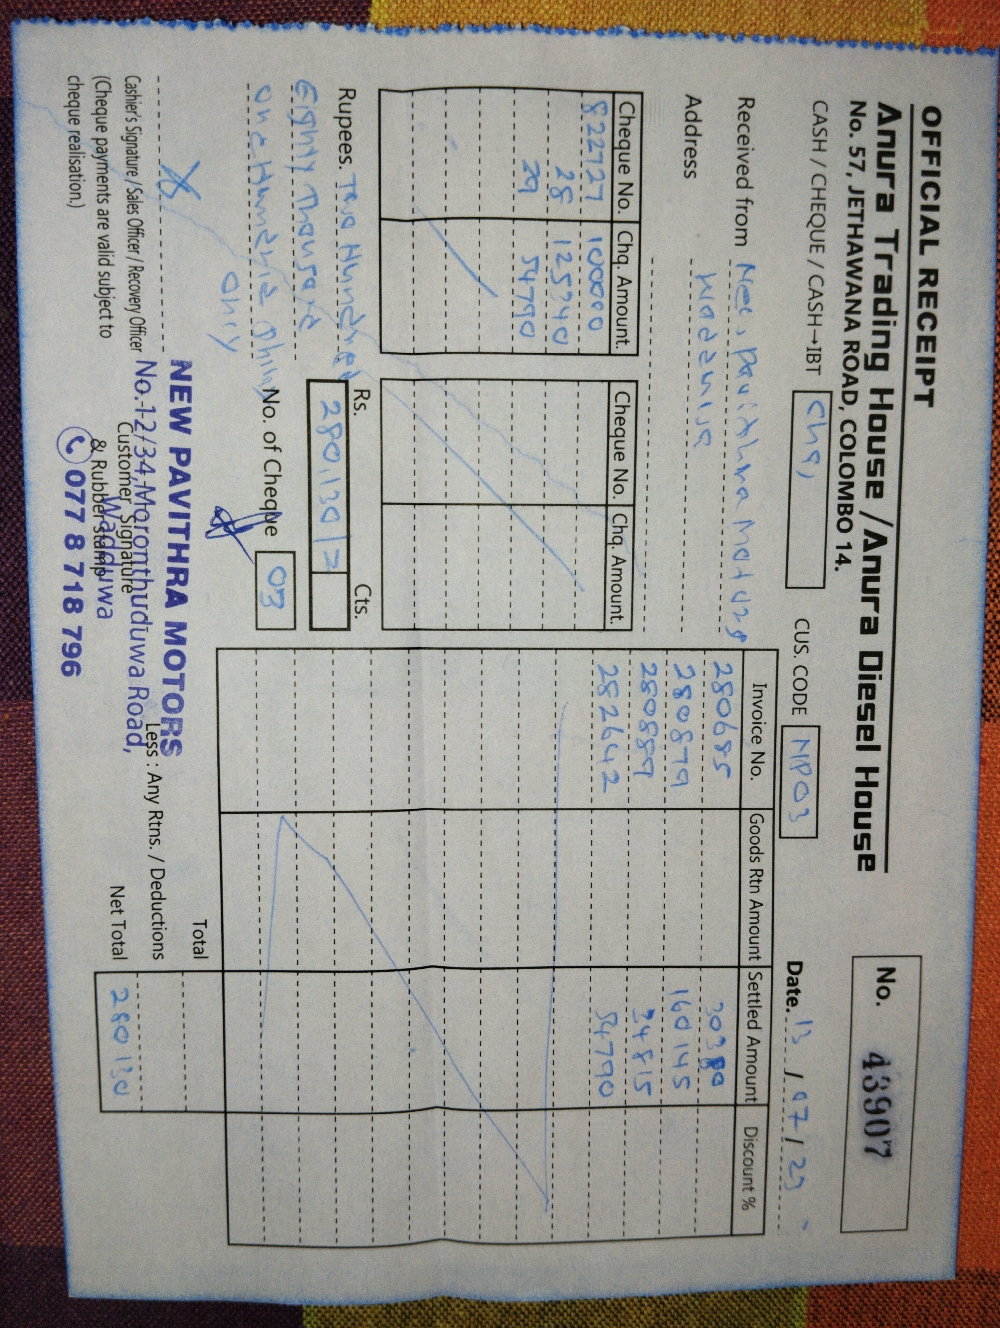 OFFICIAL RECEIPT
Anura Trading House / Anura Diesel House
No. 57, JETHAWANA ROAD, COLOMBO 14.
No. 43907
CASH / CHEQUE / CASH→IBT Chq,
CUS. CODE NP03
Date. 13 / 07 / 25
Received from New Pavithra Motors
Address Wadduwa
Cheque No. Chq. Amount.
822727 100000
28 125340
29 54790
Cheque No. Chq. Amount.
Rupees. Two Hundred
Eighty Thousand
One Hundred Thirty
Only
Rs. Cts.
280,130/=
No. of Cheque 03
Invoice No. Goods Rtn Amount Settled Amount Discount %
280685 30380
280879 160145
280889 34815
282642 54790
Total
Less : Any Rtns. / Deductions
Net Total 280130
Cashier's Signature / Sales Officer / Recovery Officer
(Cheque payments are valid subject to
cheque realisation.)
Customer Signature
& Rubber stamp
NEW PAVITHRA MOTORS
No.12/34, Moronthuduwa Road,
Wadduwa
077 8 718 796